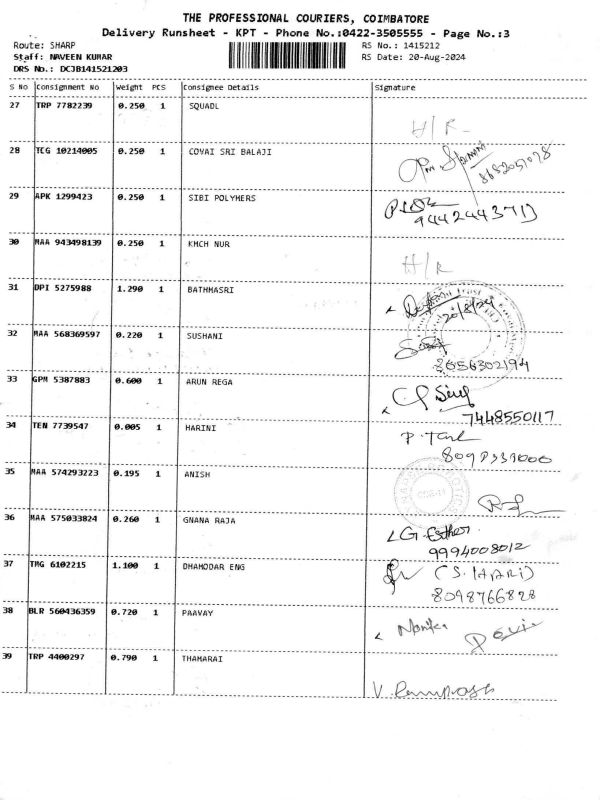 THE PROFESSIONAL COURIERS, COIMBATORE
Delivery Runsheet - KPT - Phone No.:0422-3505555 - Page No.:3
Route: SHARP RS No.: 1415212
Staff: NAVEEN KUMAR RS Date: 20-Aug-2024
DRS No.: DCJB141521203
S No Consignment No Weight PCS Consignee Details Signature
27 TRP 7782239 0.250 1 SQUADL
H/R
28 TCG 10214005 0.250 1 COVAI SRI BALAJI
29 APK 1299423 0.250 1 SIBI POLYMERS
30 MAA 943498139 0.250 1 KMCH NUR
H/R
31 DPI 5275988 1.290 1 BATHMASRI
20/8/24
32 MAA 568369597 0.220 1 SUSHANI
8056302194
33 GPM 5387883 0.600 1 ARUN REGA
7448550117
34 TEN 7739547 0.005 1 HARINI
35 MAA 574293223 0.195 1 ANISH
36 MAA 575033824 0.260 1 GNANA RAJA
G. Esther
9994008012
37 TMG 6102215 1.100 1 DHAMODAR ENG
(S. HARI)
8098766828
38 BLR 560436359 0.720 1 PAAVAY
39 TRP 4400297 0.790 1 THAMARAI